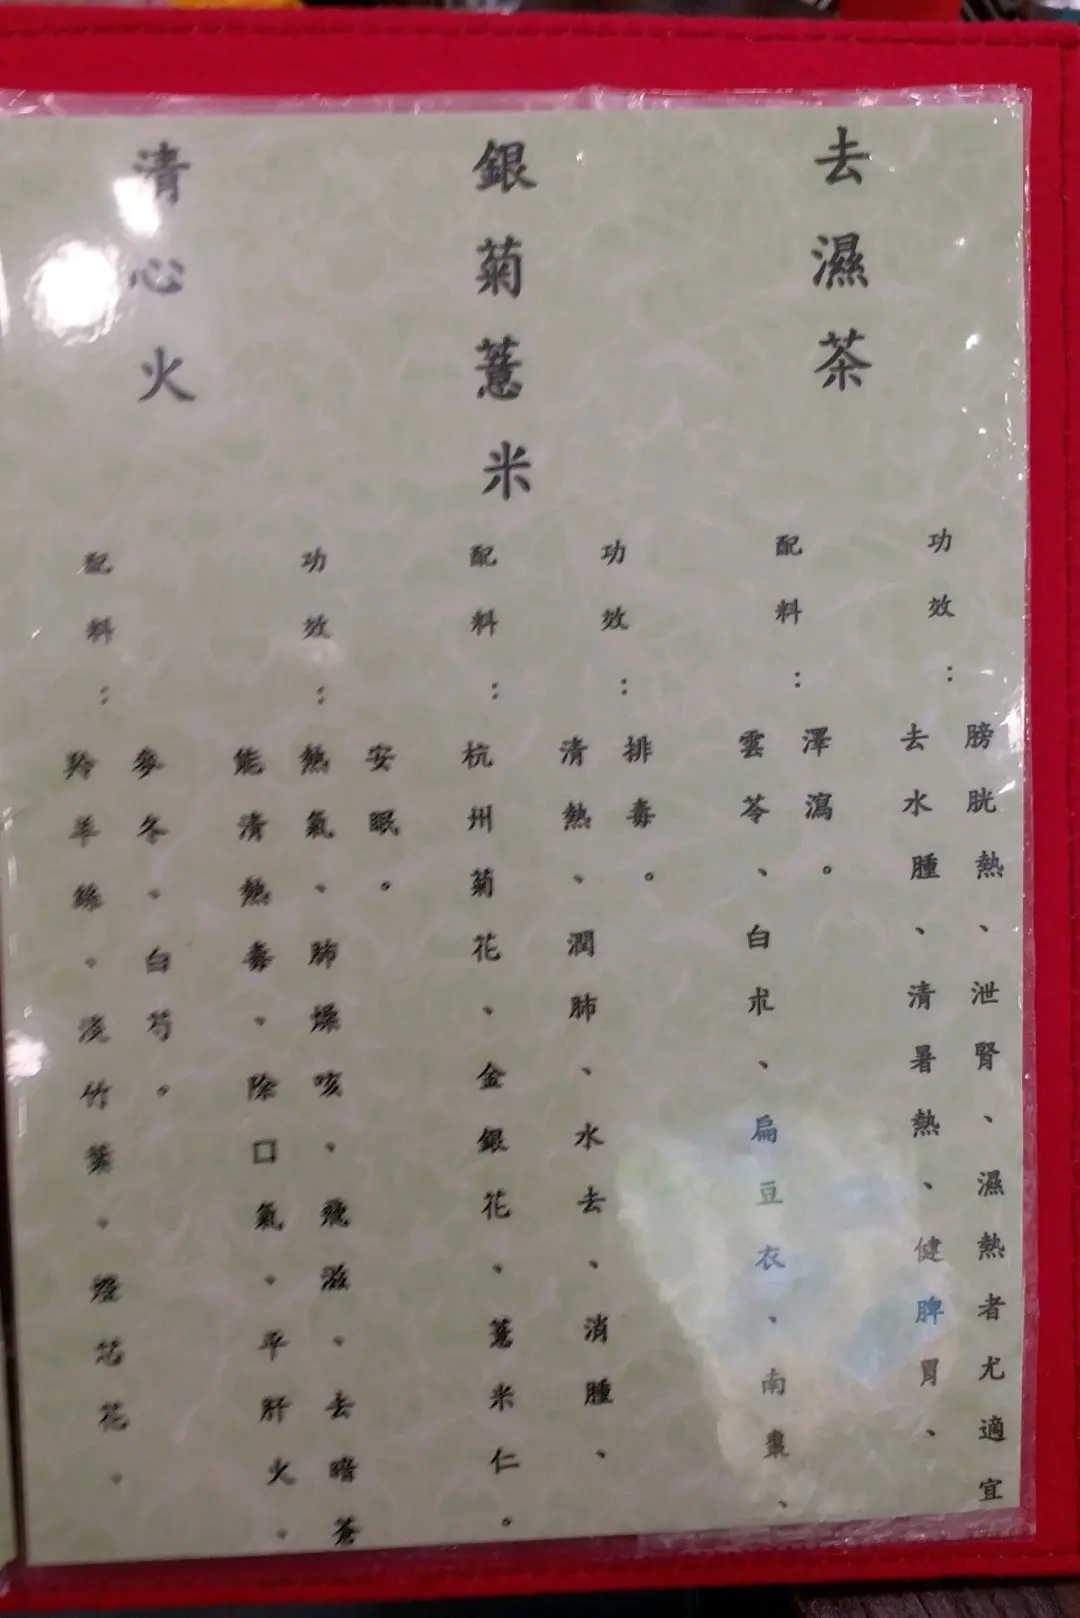 清心火
配料：
羚羊絲、淡竹葉、燈芯花、
麥冬、白芍。
功效：
能清熱毒、除口氣、平肝火、
熱氣、肺燥咳、飛滋、去暗蒼
安眠。
銀菊薏米
配料：
杭州菊花、金銀花、薏米仁。
功效：
清熱、潤肺、水去、消腫、
排毒。
去濕茶
配料：
雲苓、白朮、扁豆衣、南棗、
澤瀉。
功效：
去水腫、清暑熱、健脾胃、
膀胱熱、泄腎、濕熱者尤適宜